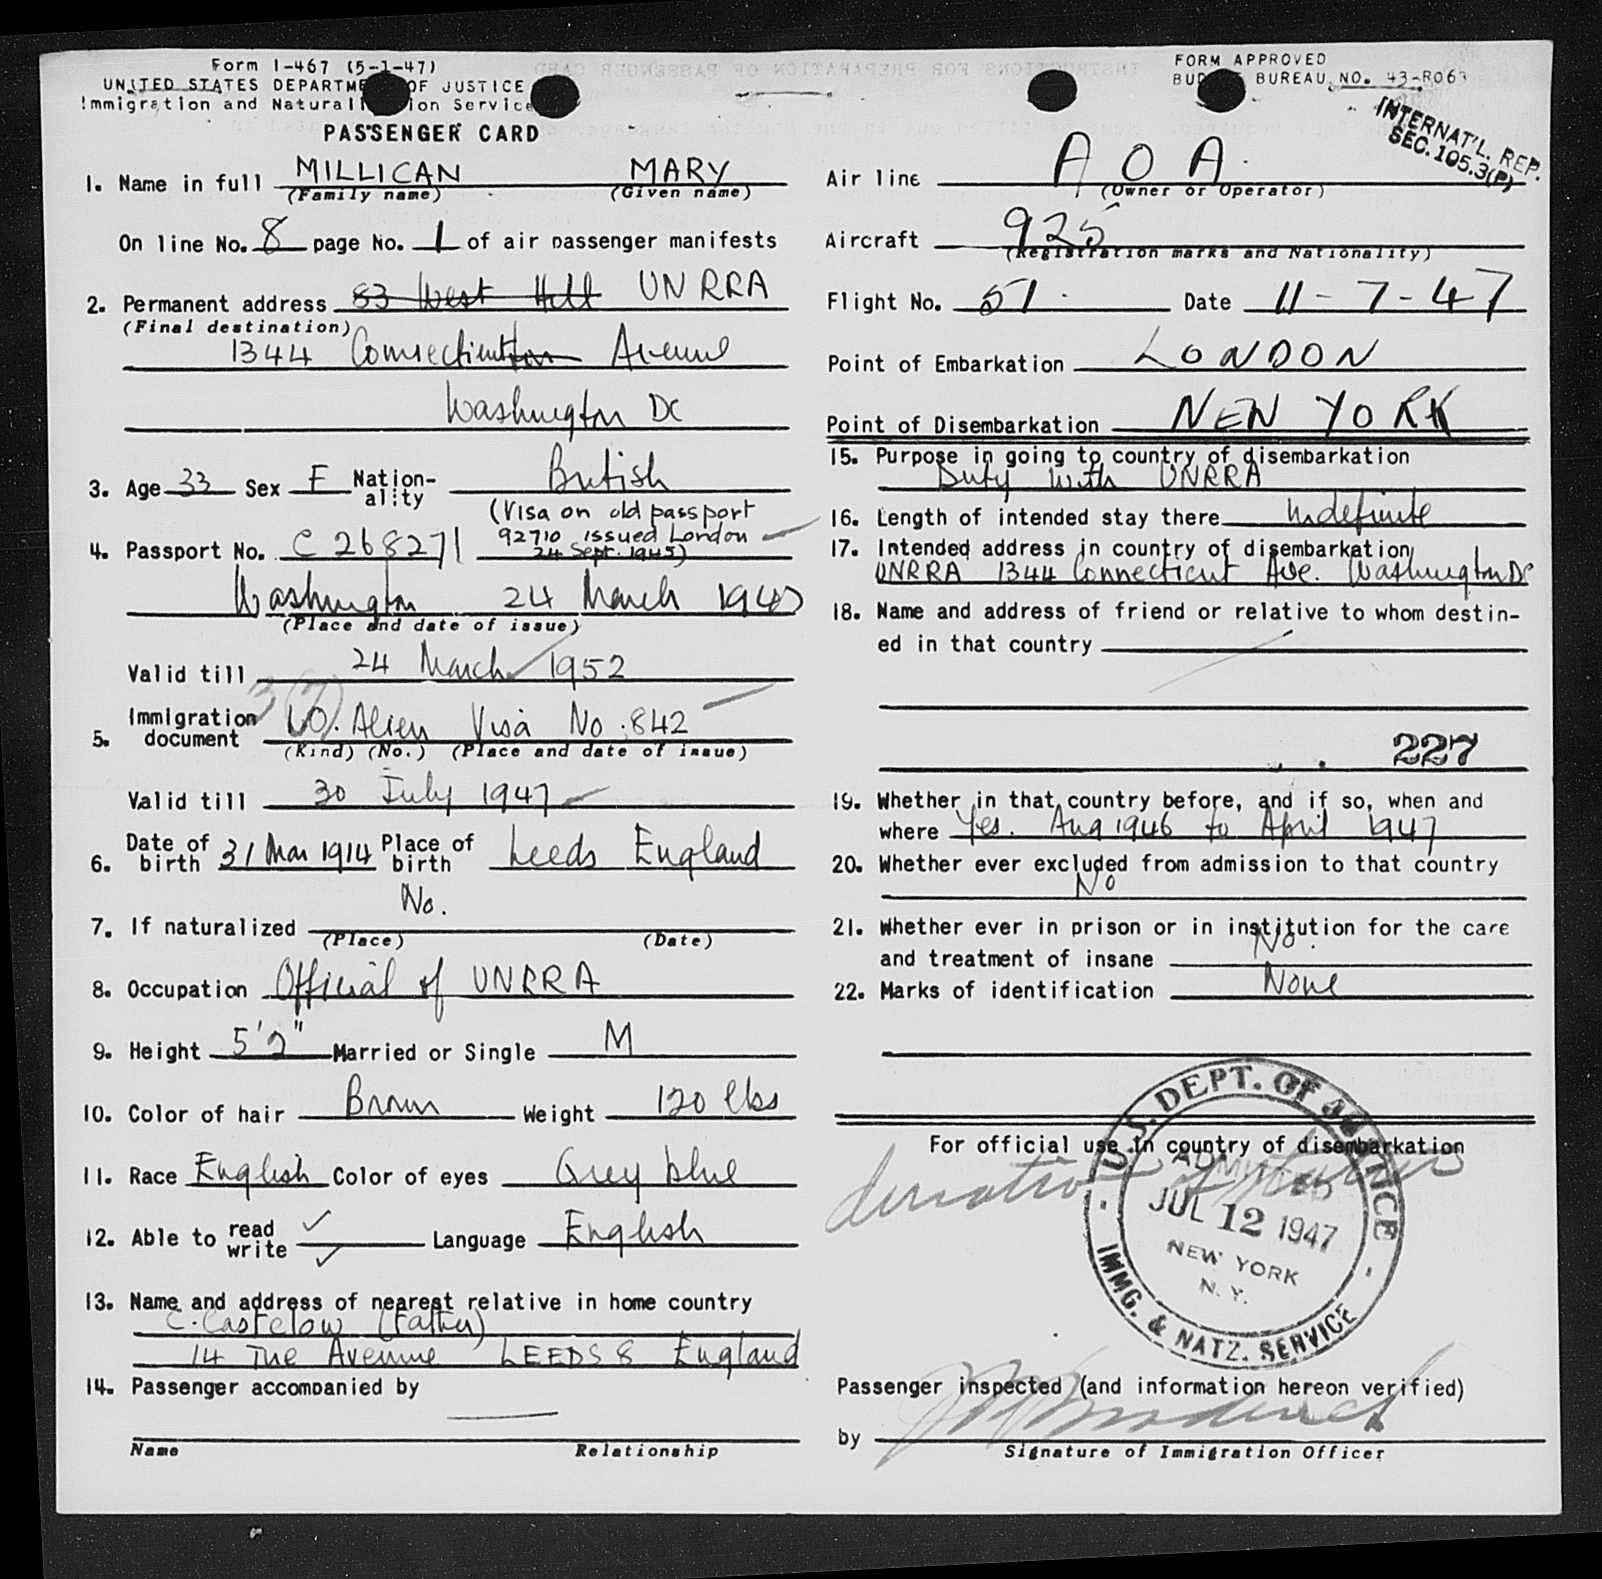 Form I-467 (5-1-47)
UNITED STATES DEPARTMENT OF JUSTICE
Immigration and Naturalization Service
PASSENGER CARD
1. Name in full MILLICAN MARY
(Family name) (Given name)
On line No. 8 page No. 1 of air passenger manifests
2. Permanent address 83 West Hill UNRRA
(Final destination)
1344 Connecticut Avenue
Washington DC
3. Age 33 Sex F Nation-
ality British
(Visa on old passport
4. Passport No. C 268271 92710 issued London
24 Sept. 1945)
Washington 24 March 1947
(Place and date of issue)
Valid till 24 March 1952
5. Immigration
document Alien Visa No. 842
(Kind) (No.) (Place and date of issue)
Valid till 30 July 1947
6. Date of
birth 31 Mar 1914 Place of
birth Leeds England
7. If naturalized No.
(Place) (Date)
8. Occupation Official of UNRRA
9. Height 5'2" Married or Single M
10. Color of hair Brown Weight 120 lbs
11. Race English Color of eyes Grey blue
12. Able to read ✓
write ✓ Language English
13. Name and address of nearest relative in home country
C. Castelow (Father)
14 The Avenue LEEDS 8 England
14. Passenger accompanied by
Name Relationship
FORM APPROVED
BUDGET BUREAU NO. 43-R063
INTERNAT'L. REP.
SEC. 105.3(P)
Air line A O A.
(Owner or Operator)
Aircraft 925
(Registration marks and Nationality)
Flight No. 51 Date 11-7-47
Point of Embarkation LONDON
Point of Disembarkation NEW YORK
15. Purpose in going to country of disembarkation
Duty with UNRRA
16. Length of intended stay there Indefinite
17. Intended address in country of disembarkation
UNRRA 1344 Connecticut Ave. Washington DC
18. Name and address of friend or relative to whom destin-
ed in that country
227
19. Whether in that country before, and if so, when and
where Yes. Aug 1946 to April 1947
20. Whether ever excluded from admission to that country
No
21. Whether ever in prison or in institution for the care
and treatment of insane No.
22. Marks of identification None
For official use in country of disembarkation
duration of status
U.S. DEPT. OF JUSTICE
ADMITTED
JUL 12 1947
NEW YORK
N.Y.
IMMG. & NATZ. SERVICE
Passenger inspected (and information hereon verified)
by
Signature of Immigration Officer